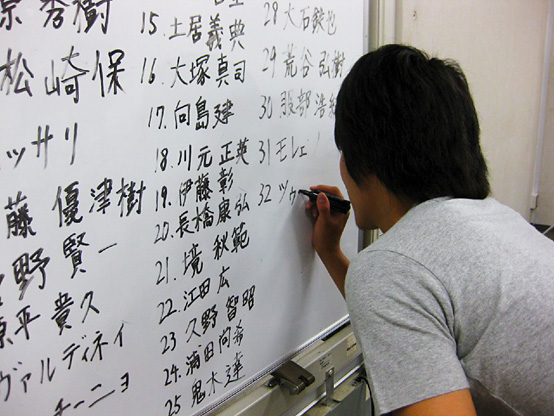 原 秀樹
松崎保
ッサリ
藤 優津樹
野 賢一
原平 貴久
ヴァルディネイ
チーニョ
15. 土居義典
16. 大塚真司
17. 向島建
18. 川元 正英
19. 伊藤 彰
20. 長橋康弘
21. 境 秋範
22. 江田 広
23 久野 智昭
24. 浦田尚希
25 鬼木 達
28 大石鉄也
29 荒谷弘樹
30 服部 浩
31 モレ
32 ツゥ